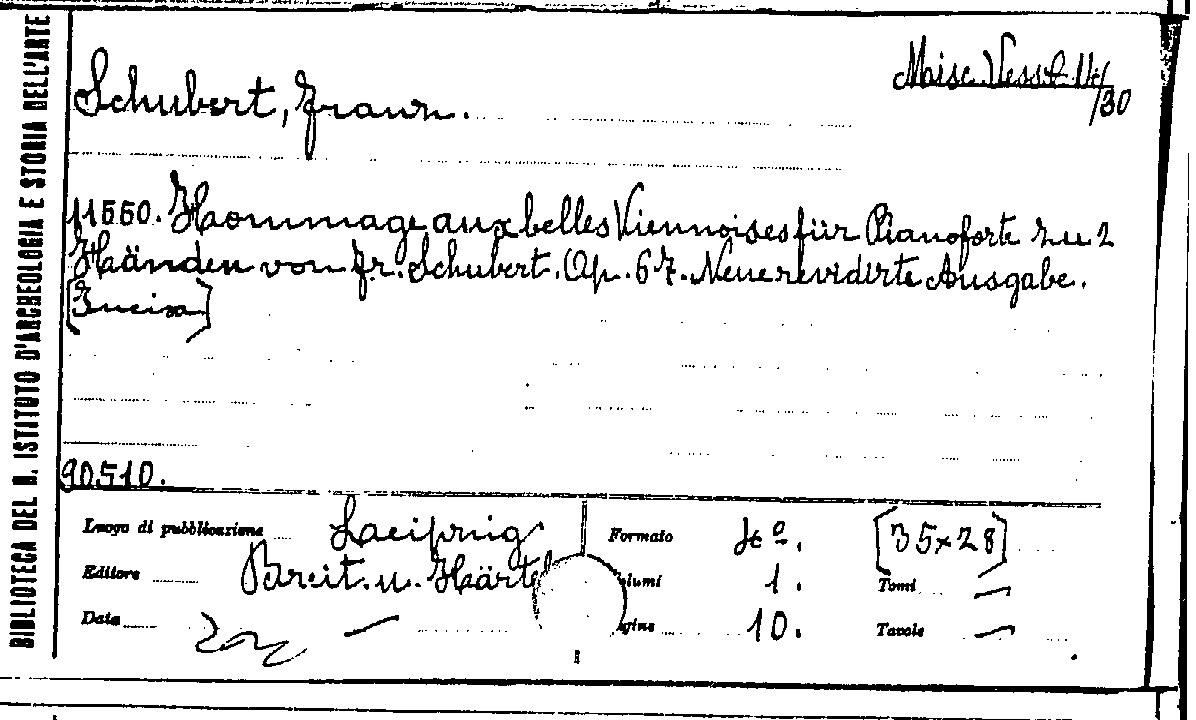 BIBLIOTECA DEL R. ISTITUTO D'ARCHEOLOGIA E STORIA DELL'ARTE
Misc. Vess. 
/30
Schubert, Franz.
11660. Hommage aux belles Viennoises für Pianoforte zu 2
Händen von Fr. Schubert. Op. 67. Neue revidirte Ausgabe.
[Incisa]
90510.
Luogo di pubblicazione Leipzig Formato 4º. [35×28]
Editore Breit. u. Härtel Volumi 1. Tomi —
Data — Pagine 10. Tavole —